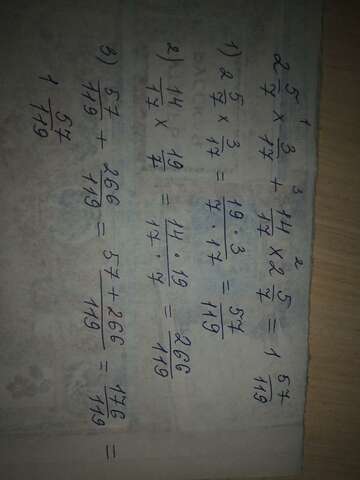 2 5/7 × 3/17 + 14/17 × 2 5/7 = 1 57/119
1 3 2
1) 2 5/7 × 3/17 = 19·3/7·17 = 57/119
2) 14/17 × 19/7 = 14·19/17·7 = 266/119
3) 57/119 + 266/119 = 57+266/119 = 176/119 =
1 57/119